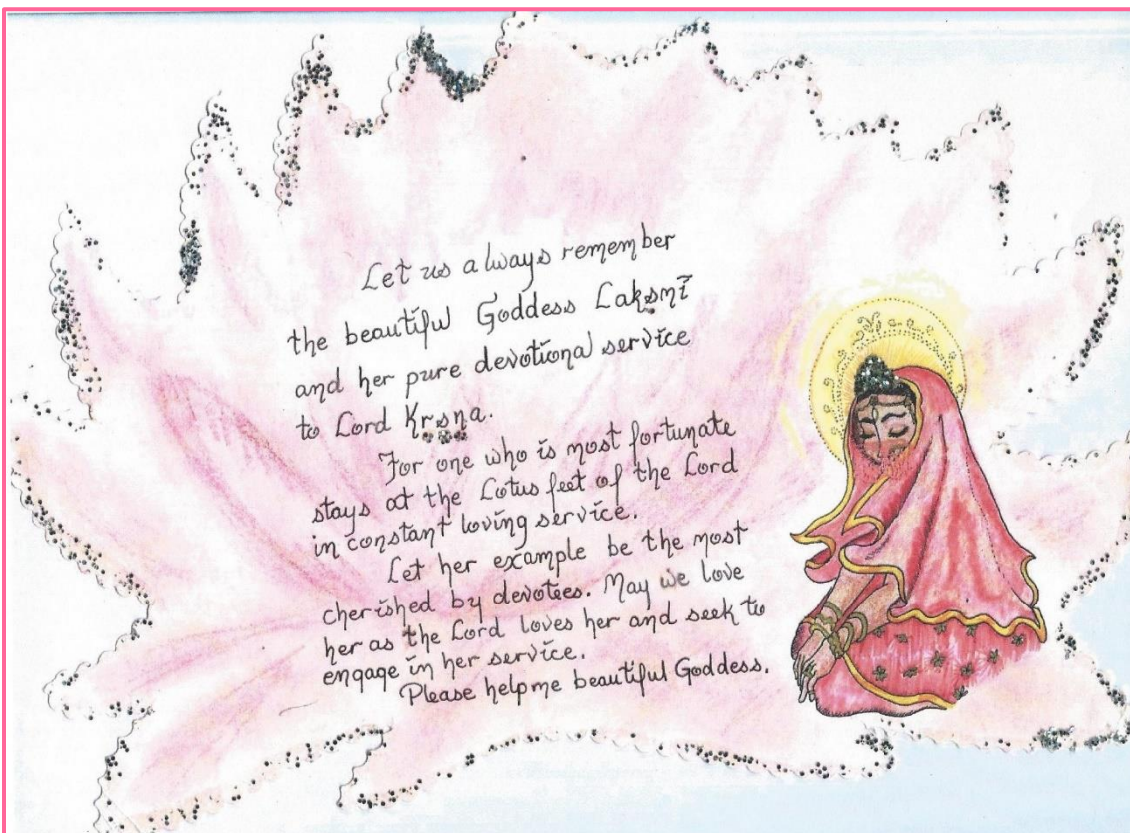 Let us always remember
the beautiful Goddess Lakṣmī
and her pure devotional service
to Lord Kṛṣṇa.
For one who is most fortunate
stays at the Lotus feet of the Lord
in constant loving service.
Let her example be the most
cherished by devotees. May we love
her as the Lord loves her and seek to
engage in her service.
Please help me beautiful Goddess.